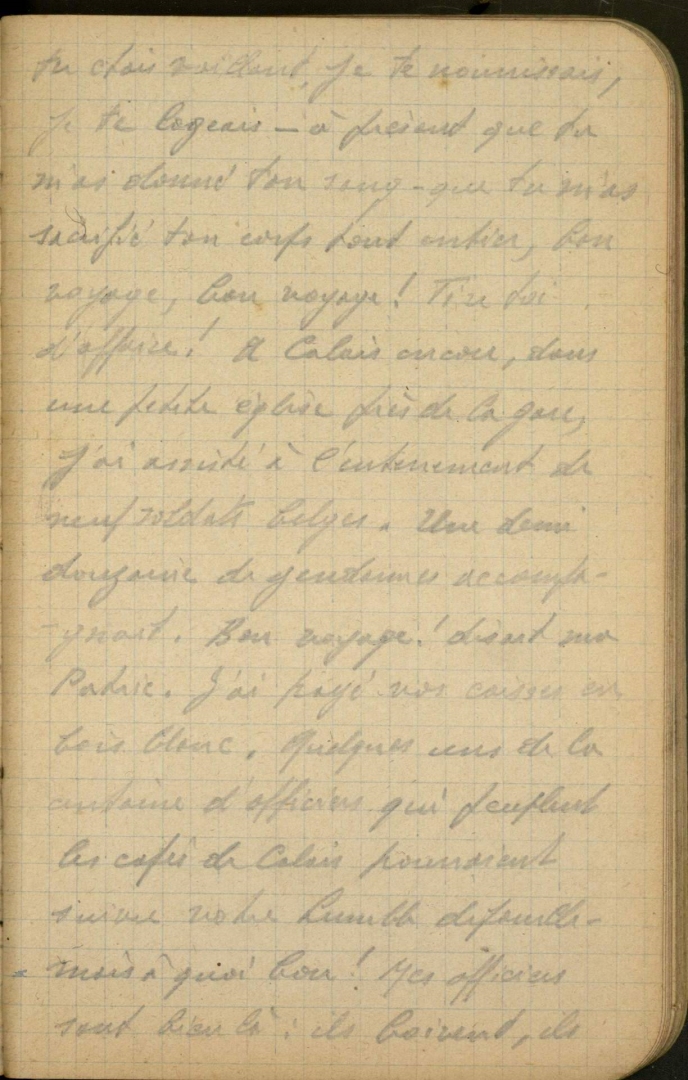 tu étais vaillant, je te nourrissais,
je te logeais — à présent que tu
m'as donné ton sang - que tu m'as
sacrifié ton corps tout entier, bon
voyage, bon voyage ! Tire toi
d'affaire ! A Calais encore, dans
une petite église près de la gare,
j'ai assisté à l'enterrement de
neuf soldats belges. Une demi
douzaine de gendarmes accompa-
-gnait. Bon voyage ! disait ma
Patrie. J'ai payé vos caisses en
bois blanc. Quelques uns de la
centaine d'officiers qui peuplent
les cafés de Calais pourraient
suivre votre humble dépouille -
mais à quoi bon ! Mes officiers
sont bien là : ils boivent, ils